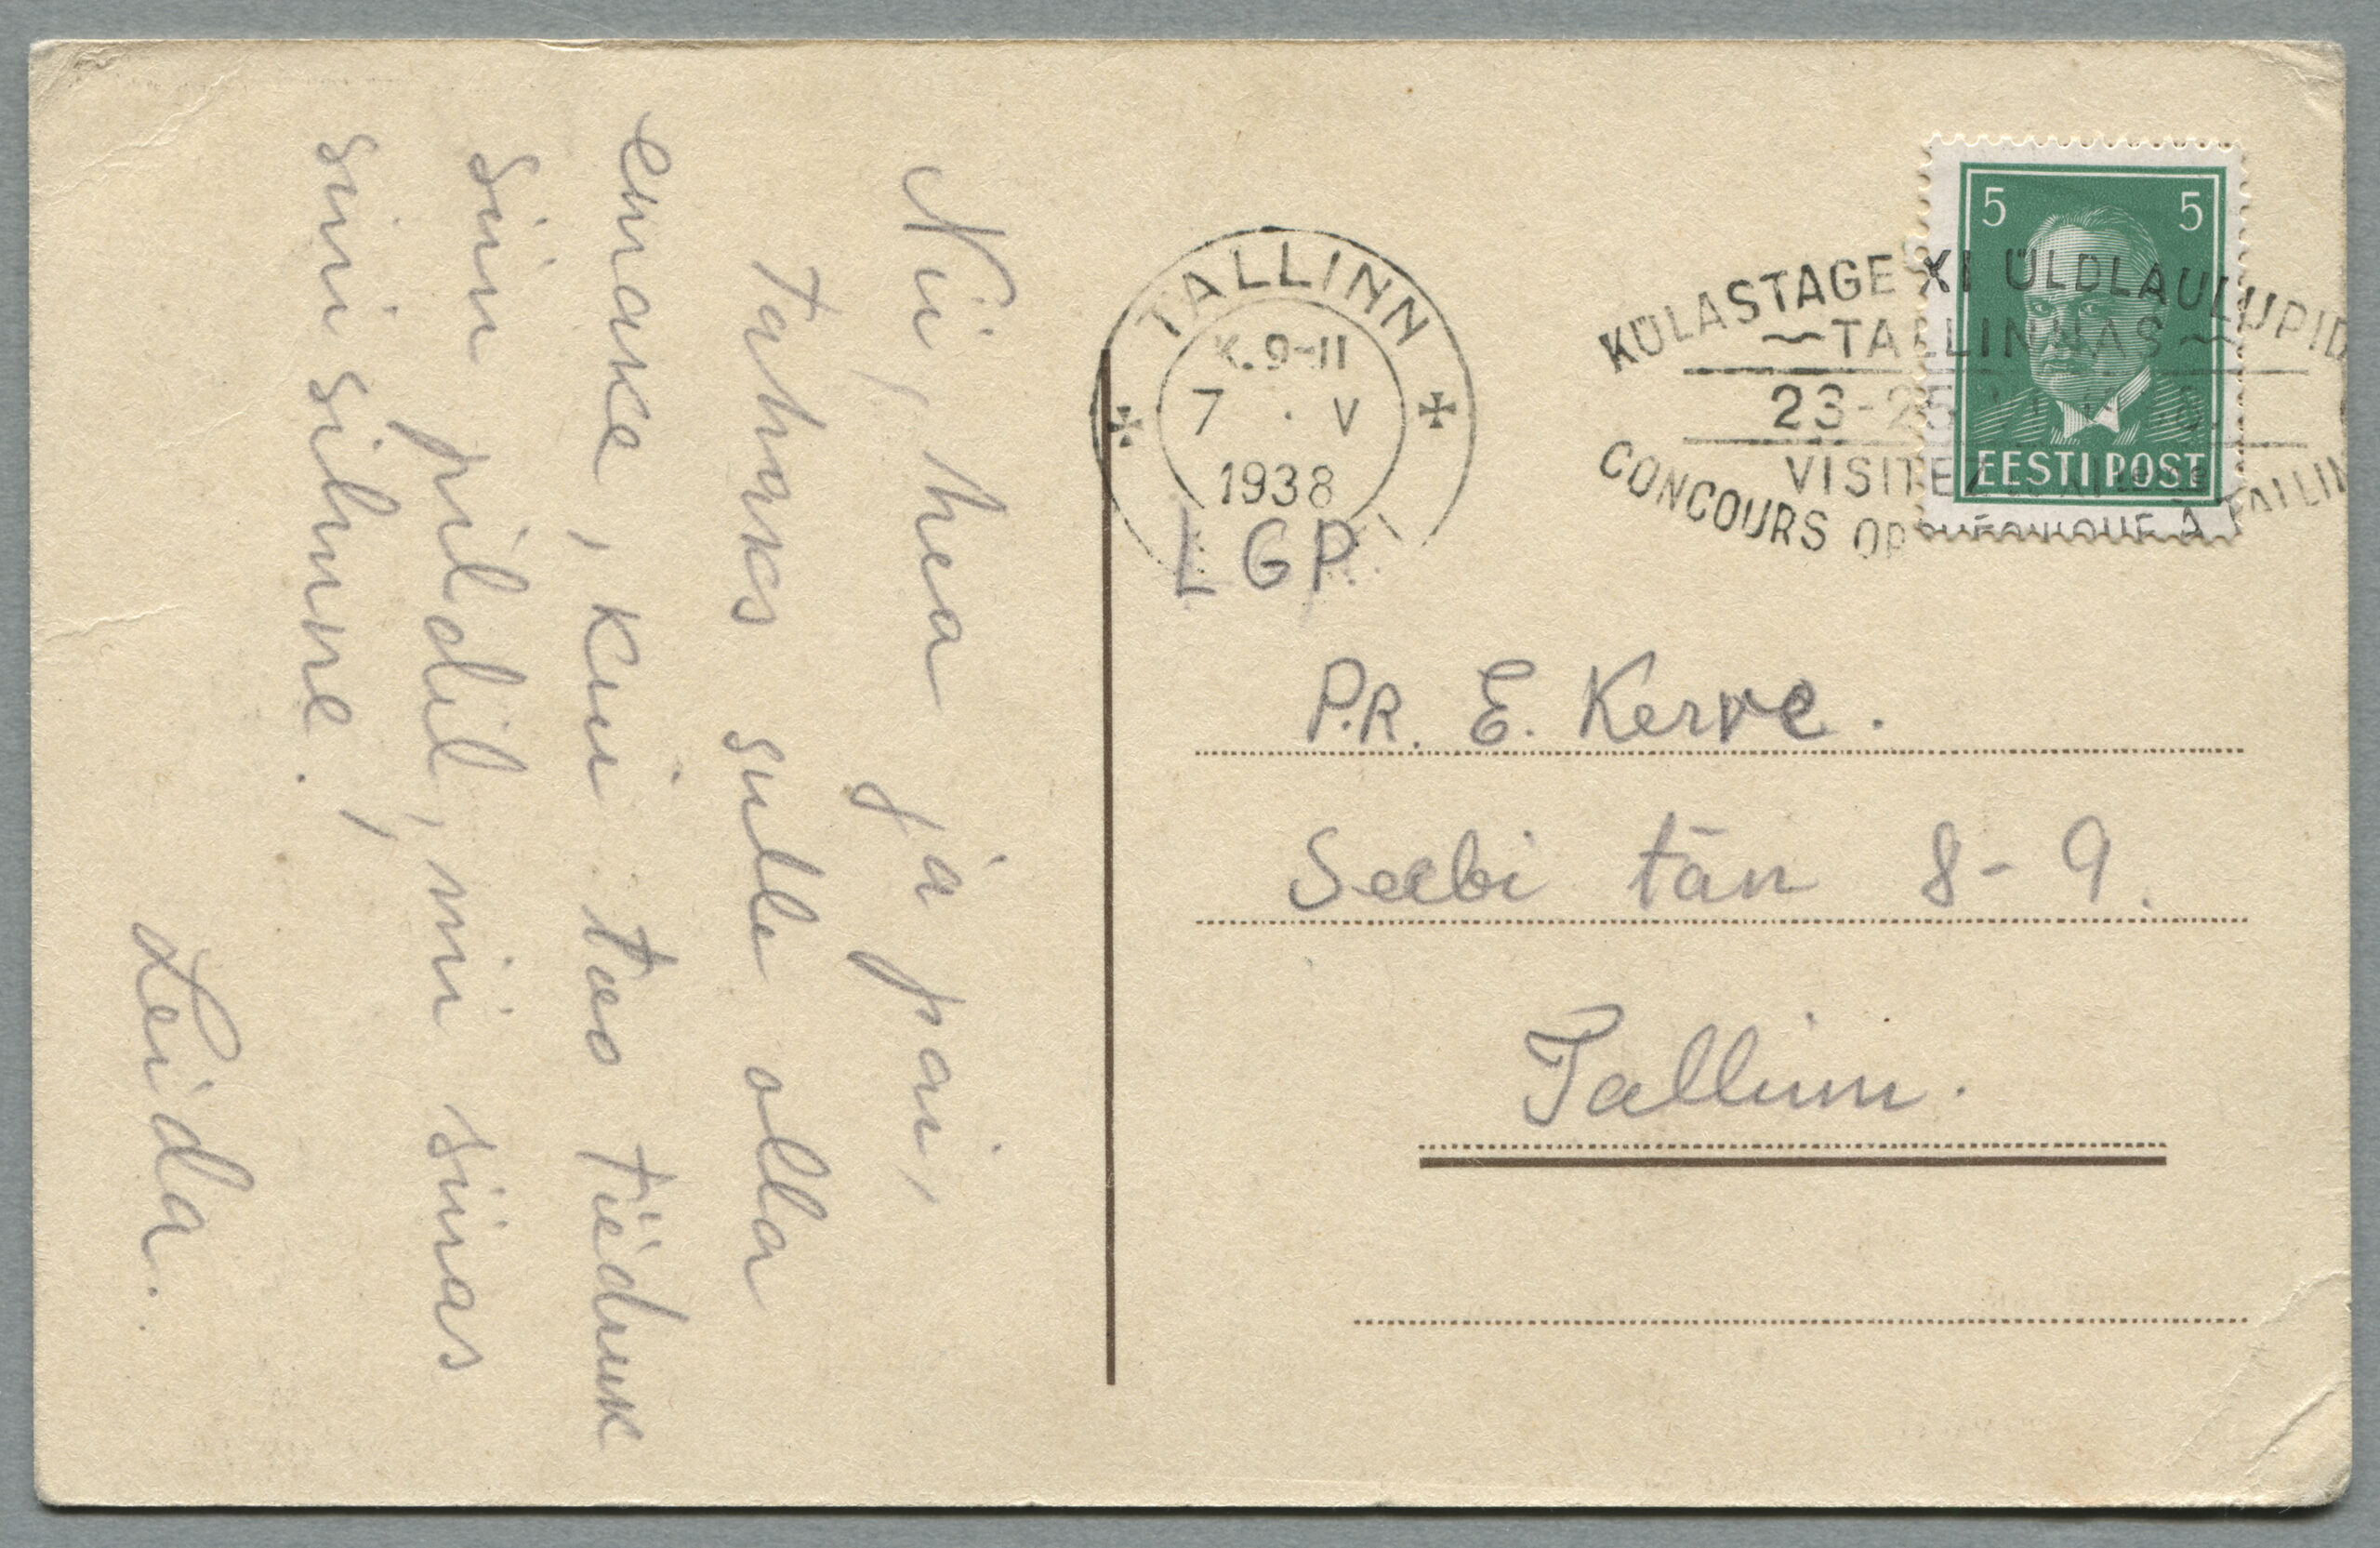 Nii, hea ja pai,
tahaks sulle olla
emake, kui too tüdruk
siin pildil, mu sinas
sini silmne!
Leida.
TALLINN
K. 9-11
7 · V
1938
KÜLASTAGE XI ÜLDLAULUPID
~TALLINNAS~
23-25
VISITEZ
CONCOURS OR A TALLIN
5 5
EESTI POST
LGP.
P.R. E. Kerve.
Seebi tän 8-9.
Tallinn.